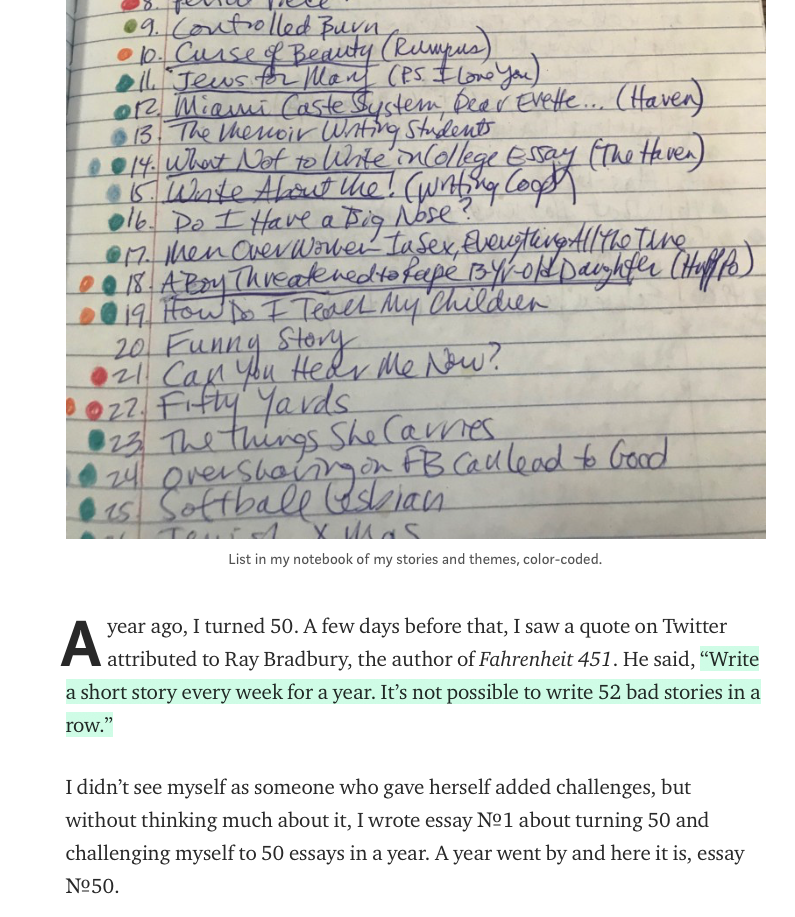 9. Controlled Burn
10. Curse of Beauty (Rumpus)
11. Jews for Mary (P.S. I Love You)
12. Miami Caste System, Dear Evette... (Haven)
13. The Memoir Writing Students
14. What Not to Write in College Essay (The Haven)
15. Write About Me! (Writing Coop)
16. Do I Have a Big Nose?
17. Men Over Women In Sex, Everything All The Time
18. A Boy Threatened to Rape 13-Yr-old Daughter (HuffPo)
19. How Do I Teach My Children
20. Funny Story
21. Can You Hear Me Now?
22. Fifty Yards
23. The Things She Carries
24. Oversharing on FB Can Lead to Good
25. Softball Lesbian
List in my notebook of my stories and themes, color-coded.
A year ago, I turned 50. A few days before that, I saw a quote on Twitter
attributed to Ray Bradbury, the author of Fahrenheit 451. He said, “Write
a short story every week for a year. It’s not possible to write 52 bad stories in a
row.”
I didn’t see myself as someone who gave herself added challenges, but
without thinking much about it, I wrote essay №1 about turning 50 and
challenging myself to 50 essays in a year. A year went by and here it is, essay
№50.